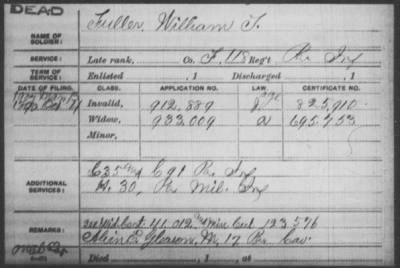 DEAD
NAME OF SOLDIER: Fuller, William T.
SERVICE: Late rank, Co. F, 118 Reg't Pa. Inf
TERM OF SERVICE: Enlisted , 1 Discharged , 1
DATE OF FILING. CLASS. APPLICATION NO. LAW. CERTIFICATE NO.
Invalid, 912,889 825,910
Widow, 933,009 695,753
Minor,
ADDITIONAL SERVICES: C 35 & C 91 Pa. Inf
H. 30, Pa. Mil. Inf
REMARKS: see Wid. Cert. 41.012 Min Cert 123576
Gleason, M, 17 Pa. Cav.
Died , 1